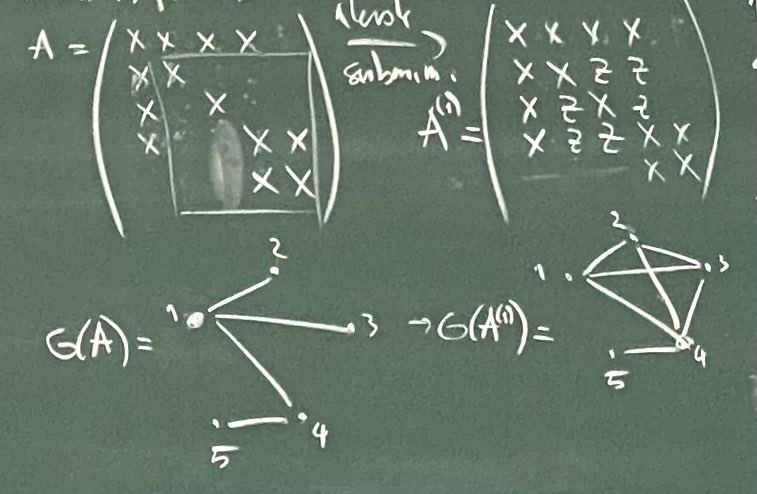 A = ( X X X X
X X
X X
X X X
X X )
submin.
A⁽¹⁾ = ( X X X X
X X z z
X z X z
X z z X X
X X )
G(A) = 1 2 3 4 5
→ G(A⁽¹⁾) = 1 2 3 4 5